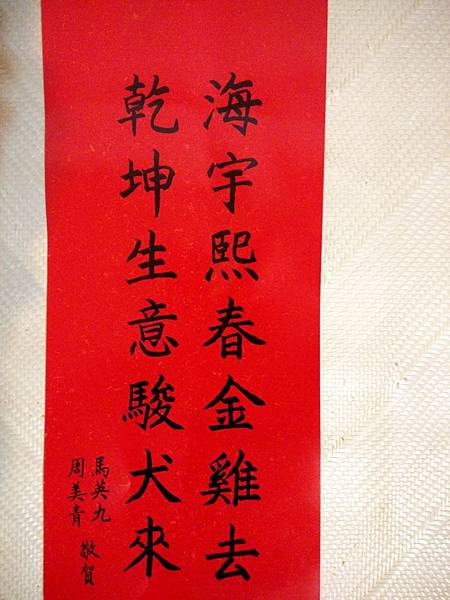 海宇熙春金雞去
乾坤生意駿犬來
馬英九
周美青
敬賀